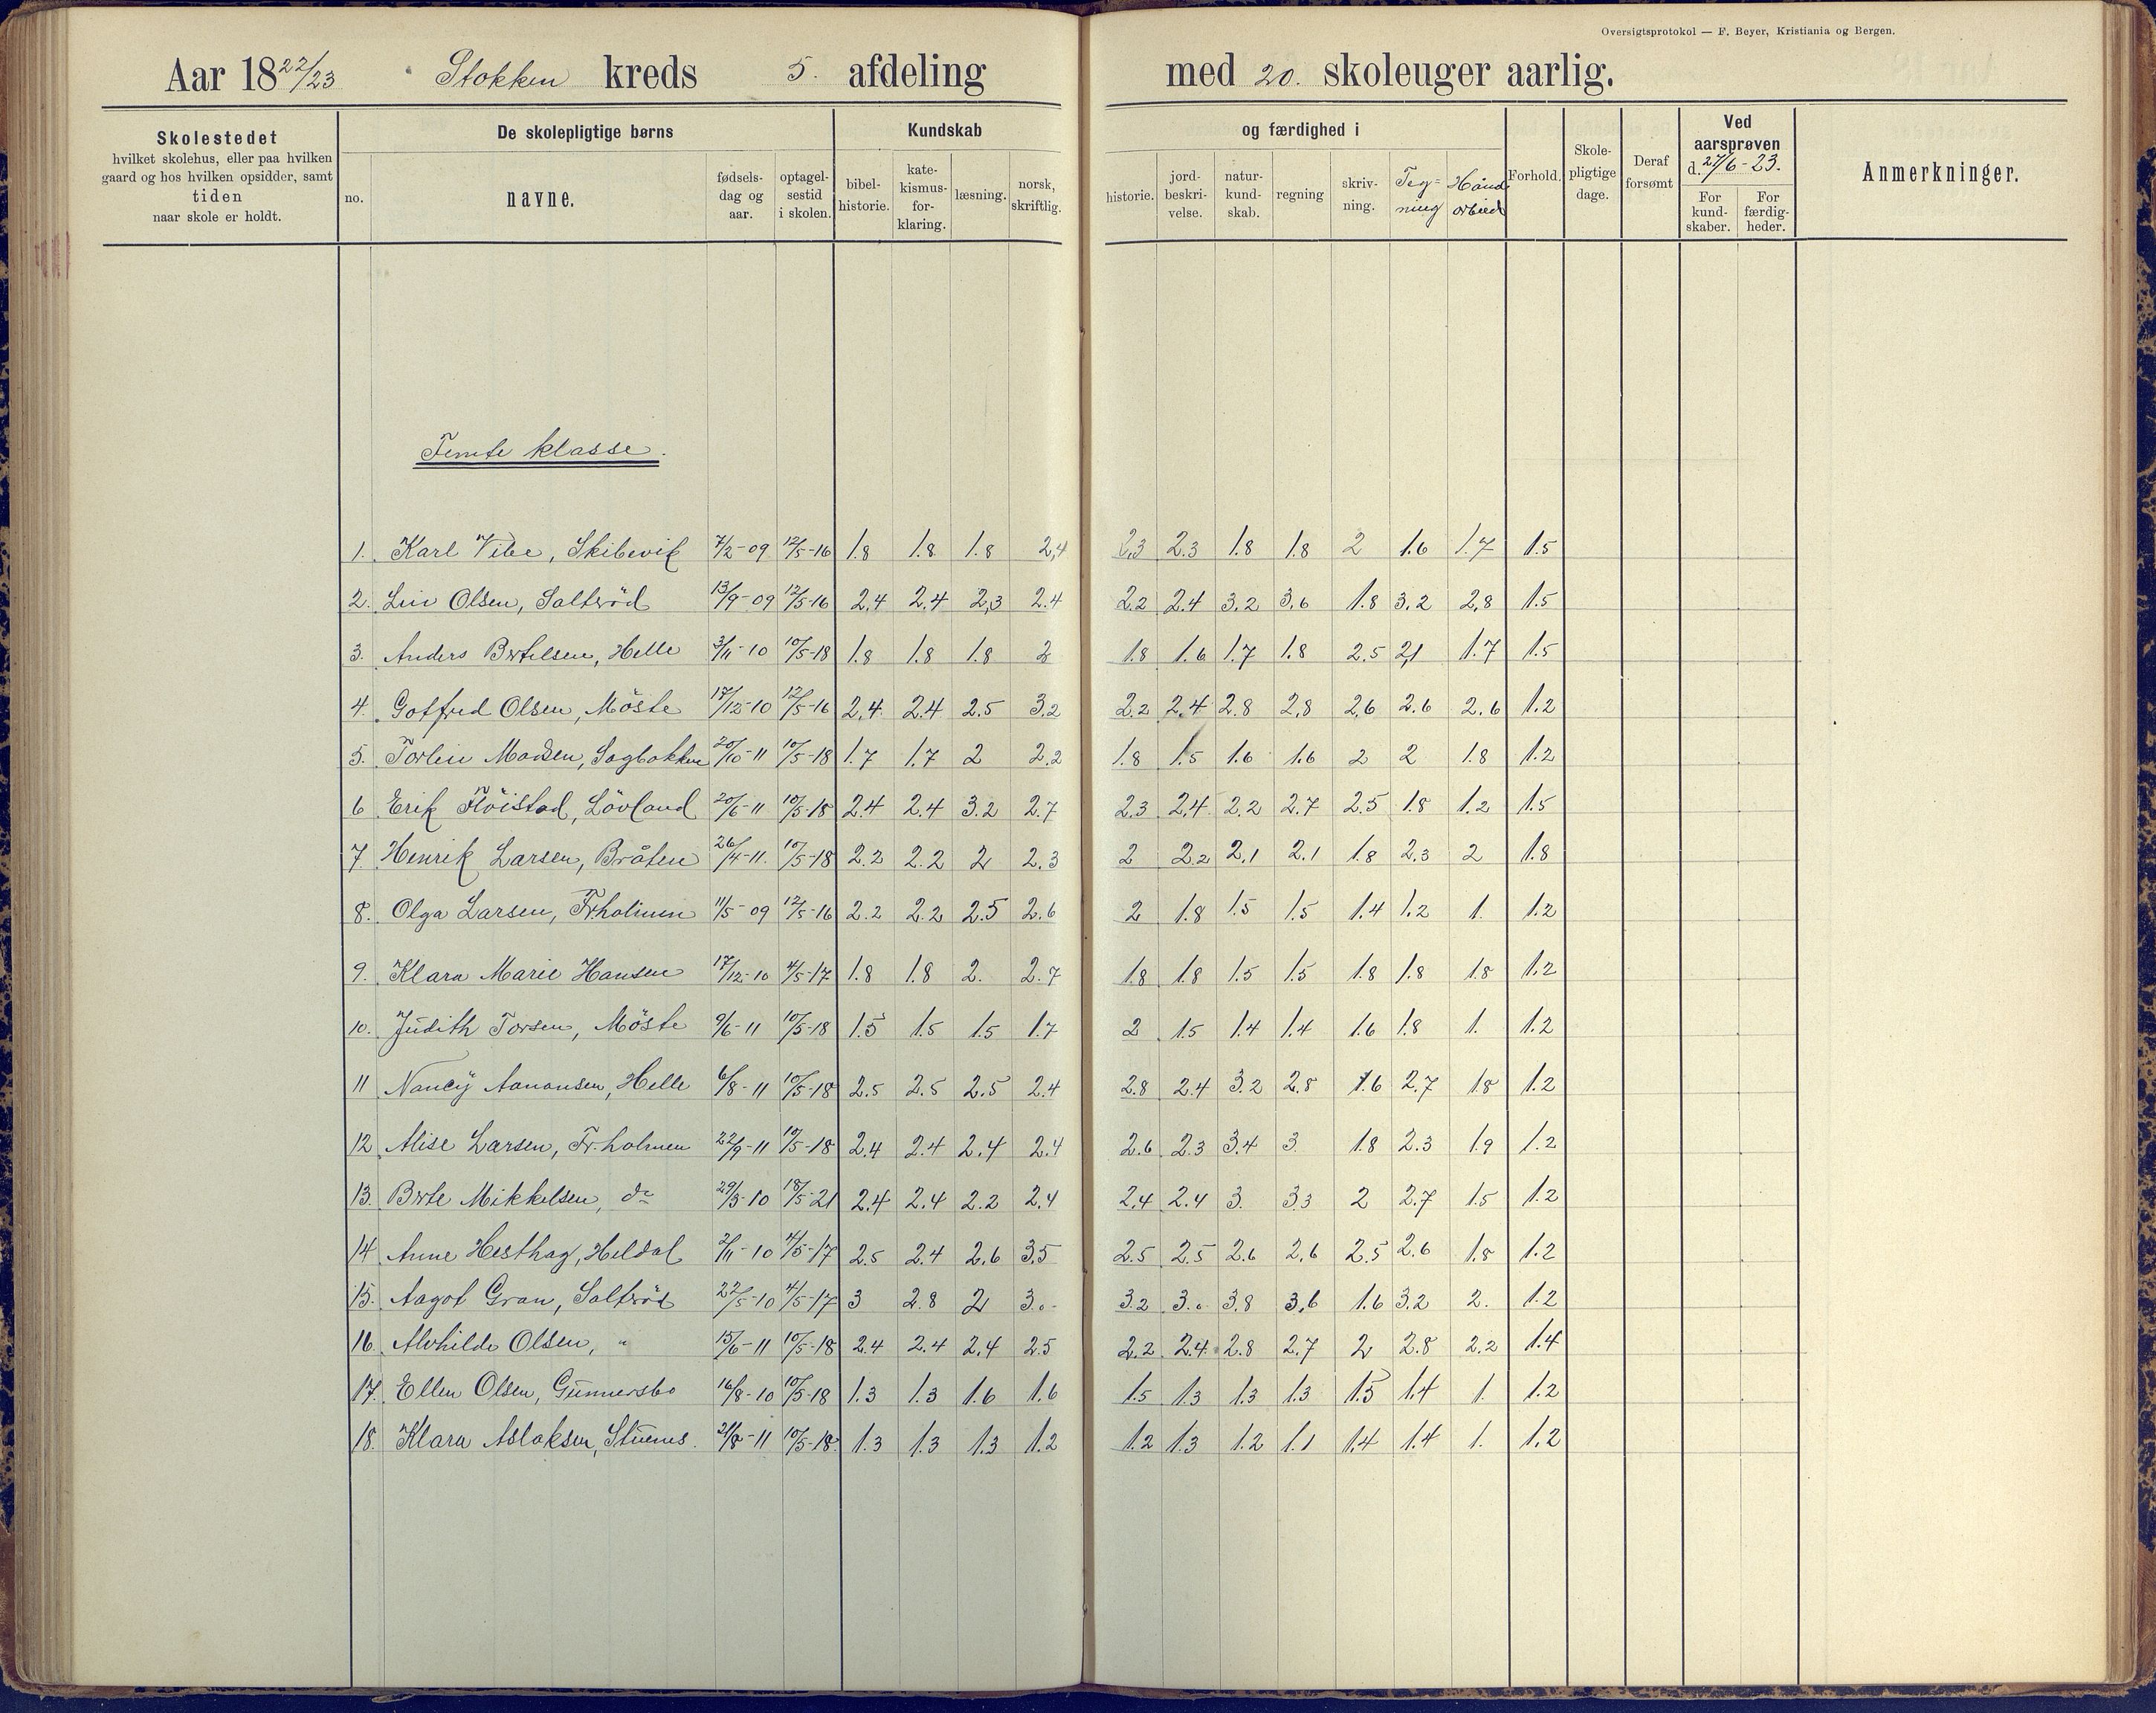 Oversigtsprotokol — F. Beyer, Kristiania og Bergen.
Aar 18 22/23 Stokken kreds 5. afdeling med 20. skoleuger aarlig.
Skolestedet hvilket skolehus, eller paa hvilken gaard og hos hvilken opsidder, samt tiden naar skole er holdt.
De skolepligtige børns
no. navne. fødsels-dag og aar. optagel-sestid i skolen.
Kundskab og færdighed i
bibel-historie. kate-kismus-for-klaring. læsning. norsk, skriftlig. historie. jord-beskri-velse. natur-kund-skab. regning skriv-ning. Teg-ning Hånd arbeid
Forhold. Skole-pligtige dage. Deraf forsømt
Ved aarsprøven d. 27/6-23.
For kund-skaber. For færdig-heder.
Anmerkninger.
Femte klasse.
1. Karl Vibe, Skibevik 7/2-09 12/5-16 1.8 1.8 1.8 2,4 2,3 2.3 1.8 1.8 2 1.6 1.7 1.5
2. Liv Olsen, Saltrød 13/9-09 12/5-16 2.4 2,4 2,3 2.4 2.2 2.4 3.2 3,6 1.8 3.2 2,8 1.5
3. Anders Bertelsen, Helle 3/11-10 10/5-18 1.8 1.8 1.8 2 1.8 1.6 1.7 1.8 2.5 2,1 1.7 1.5
4. Gotfred Olsen, Möste 17/12-10 12/5-16 2,4 2.4 2.5 3.2 2.2 2.4 2.8 2,8 2,6 2.6 2.6 1.2
5. Torleiv Madsen, Sagbakken 20/10-11 10/5-18 1.7 1.7 2 2.2 1.8 1.5 1.6 1.6 2 2 1.8 1.2
6 Erik Flöistad, Lövland 20/6-11 10/5-18 2.4 2.4 3.2 2.7 2.3 2,4 2.2 2.7 2.5 1.8 1.2 1.5
7. Henrik Larsen, Bråten 26/4-11. 10/5-18 2.2 2.2 2 2.3 2 2.2 2,1 2.1 1.8 2,3 2 1.8
8. Olga Larsen, Frholmen 11/5-09 12/5-16 2.2 2.2 2.5 2.6 2 1.8 1.5 1.5 1.4 1.2 1. 1.2
9. Klara Marie Hansen 17/12-10 4/5-17 1.8 1.8 2. 2.7 1.8 1.8 1.5 1.5 1.8 1.8 1.8 1.2
10. Judith Torsen, Möste 9/6-11 10/5-18 1.5 1.5 1.5 1.7 2 1.5 1.4 1.4 1.6 1.8 1. 1.2
11 Nancy Aanonsen, Helle 6/8-11 10/5-18 2.5 2.5 2.5 2.4 2.8 2.4 3.2 2.8 1.6 2.7 1.8 1.2
12 Alise Larsen, Fr.holmen 22/9-11 10/5-18 2.4 2.4 2,4 2.4 2.6 2.3 3.4 3. 1.8 2.3 1.9 1.2
13. Berte Mikkelsen, do 29/3-10 18/5-21 2,4 2,4 2.2 2,4 2,4 2.4 3. 3.3 2 2.7 1.5 1.2
14 Anne Hesthag, Heldal 2/11-10 4/5-17 2.5 2.4 2.6 3.5 2.5 2.5 2.6 2,6 2.5 2.6 1.8 1.2
15. Aagot Gran, Saltrød 22/5-10 4/5-17 3 2.8 2 3.- 3.2 3. 3.8 3,6 1.6 3.2 2. 1.2
16. Alvhilde Olsen, " 15/6-11 10/5-18 2.4 2.4 2,4 2.5 2.2 2.4 2.8 2.7 2 2.8 2.2 1.4
17. Ellen Olsen, Gunnersbo 16/8-10 10/5-18 1.3 1.3 1.6 1.6 1.5 1.3 1.3 1.3 1.5 1.4 1. 1.2
18. Klara Aslaksen, Stuenes. 21/8-11 10/5-18. 1.3 1.3 1.3 1.2 1.2 1.3 1.2 1.1 1.4 1.4 1. 1.2